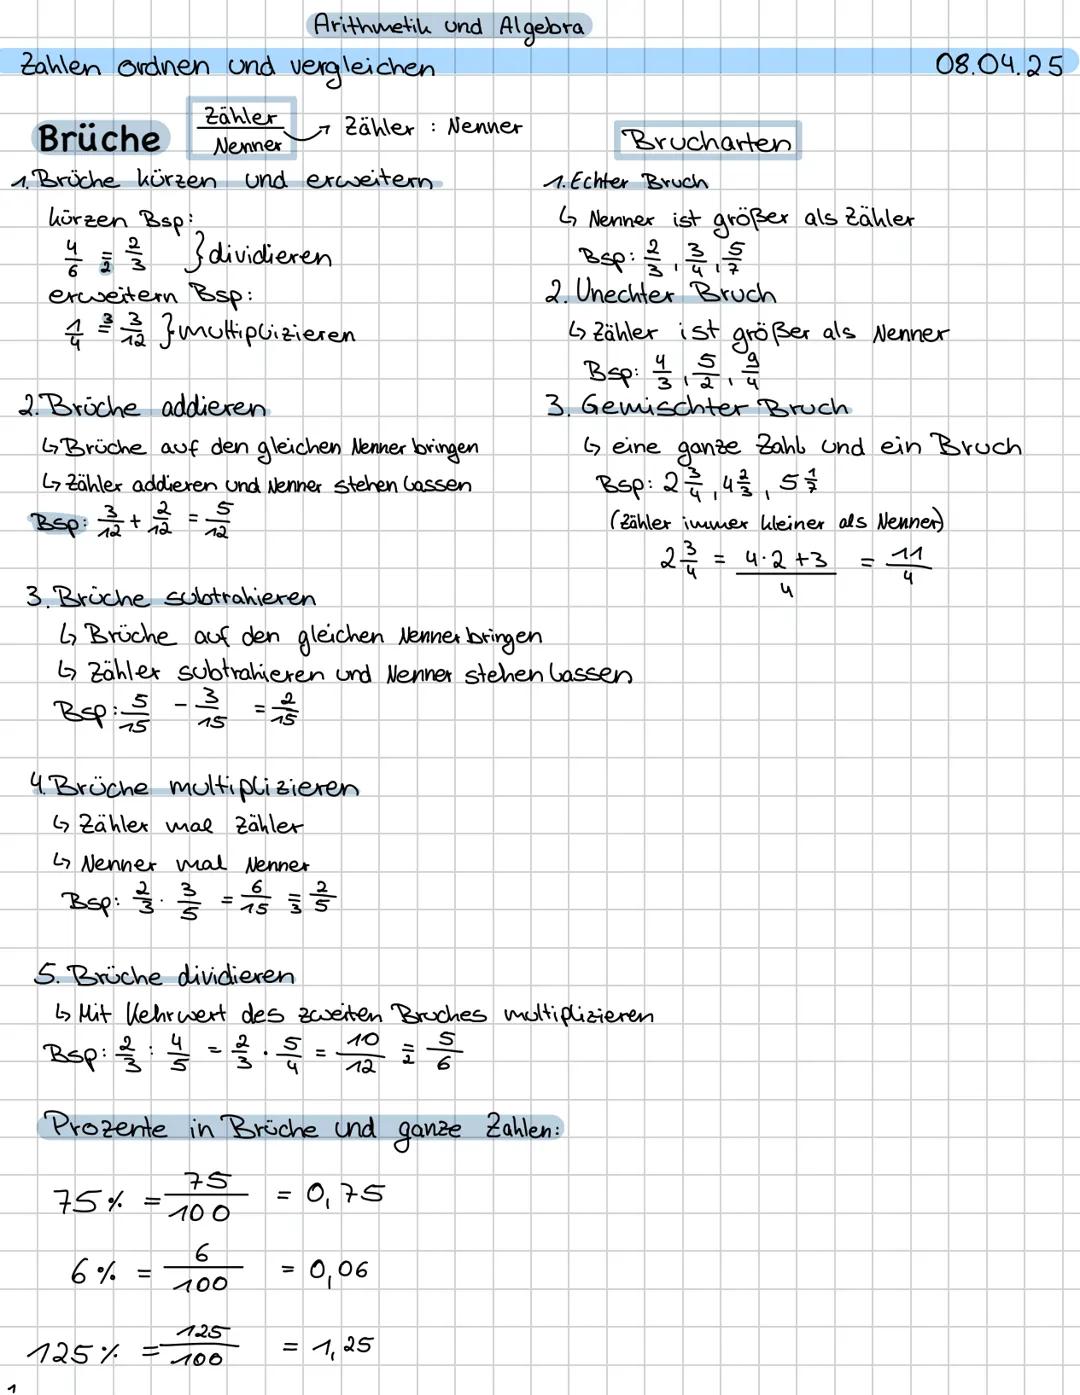 Arithmetik und Algebra
Zahlen ordnen und vergleichen 08.04.25
Brüche Zähler/Nenner → Zähler : Nenner
1. Brüche kürzen und erweitern
kürzen Bsp:
4/6 =2 2/3 } dividieren
erweitern Bsp:
1/4 =3 3/12 } multiplizieren
2. Brüche addieren
↳ Brüche auf den gleichen Nenner bringen
↳ Zähler addieren und Nenner stehen lassen
Bsp: 3/12 + 2/12 = 5/12
3. Brüche subtrahieren
↳ Brüche auf den gleichen Nenner bringen
↳ Zähler subtrahieren und Nenner stehen lassen
Bsp: 5/15 - 3/15 = 2/15
4. Brüche multiplizieren
↳ Zähler mal Zähler
↳ Nenner mal Nenner
Bsp: 2/3 · 3/5 = 6/15 =3 2/5
5. Brüche dividieren
↳ Mit Kehrwert des zweiten Bruches multiplizieren
Bsp: 2/3 : 4/5 = 2/3 · 5/4 = 10/12 =2 5/6
Prozente in Brüche und ganze Zahlen:
75% = 75/100 = 0,75
6% = 6/100 = 0,06
125% = 125/100 = 1,25
1
Brucharten
1. Echter Bruch
↳ Nenner ist größer als Zähler
Bsp: 2/3, 3/4, 5/7
2. Unechter Bruch
↳ Zähler ist größer als Nenner
Bsp: 4/3, 5/2, 9/4
3. Gemischter Bruch
↳ eine ganze Zahl und ein Bruch
Bsp: 2 3/4, 4 2/3, 5 1/7
(Zähler immer kleiner als Nenner)
2 3/4 = 4·2+3/4 = 11/4